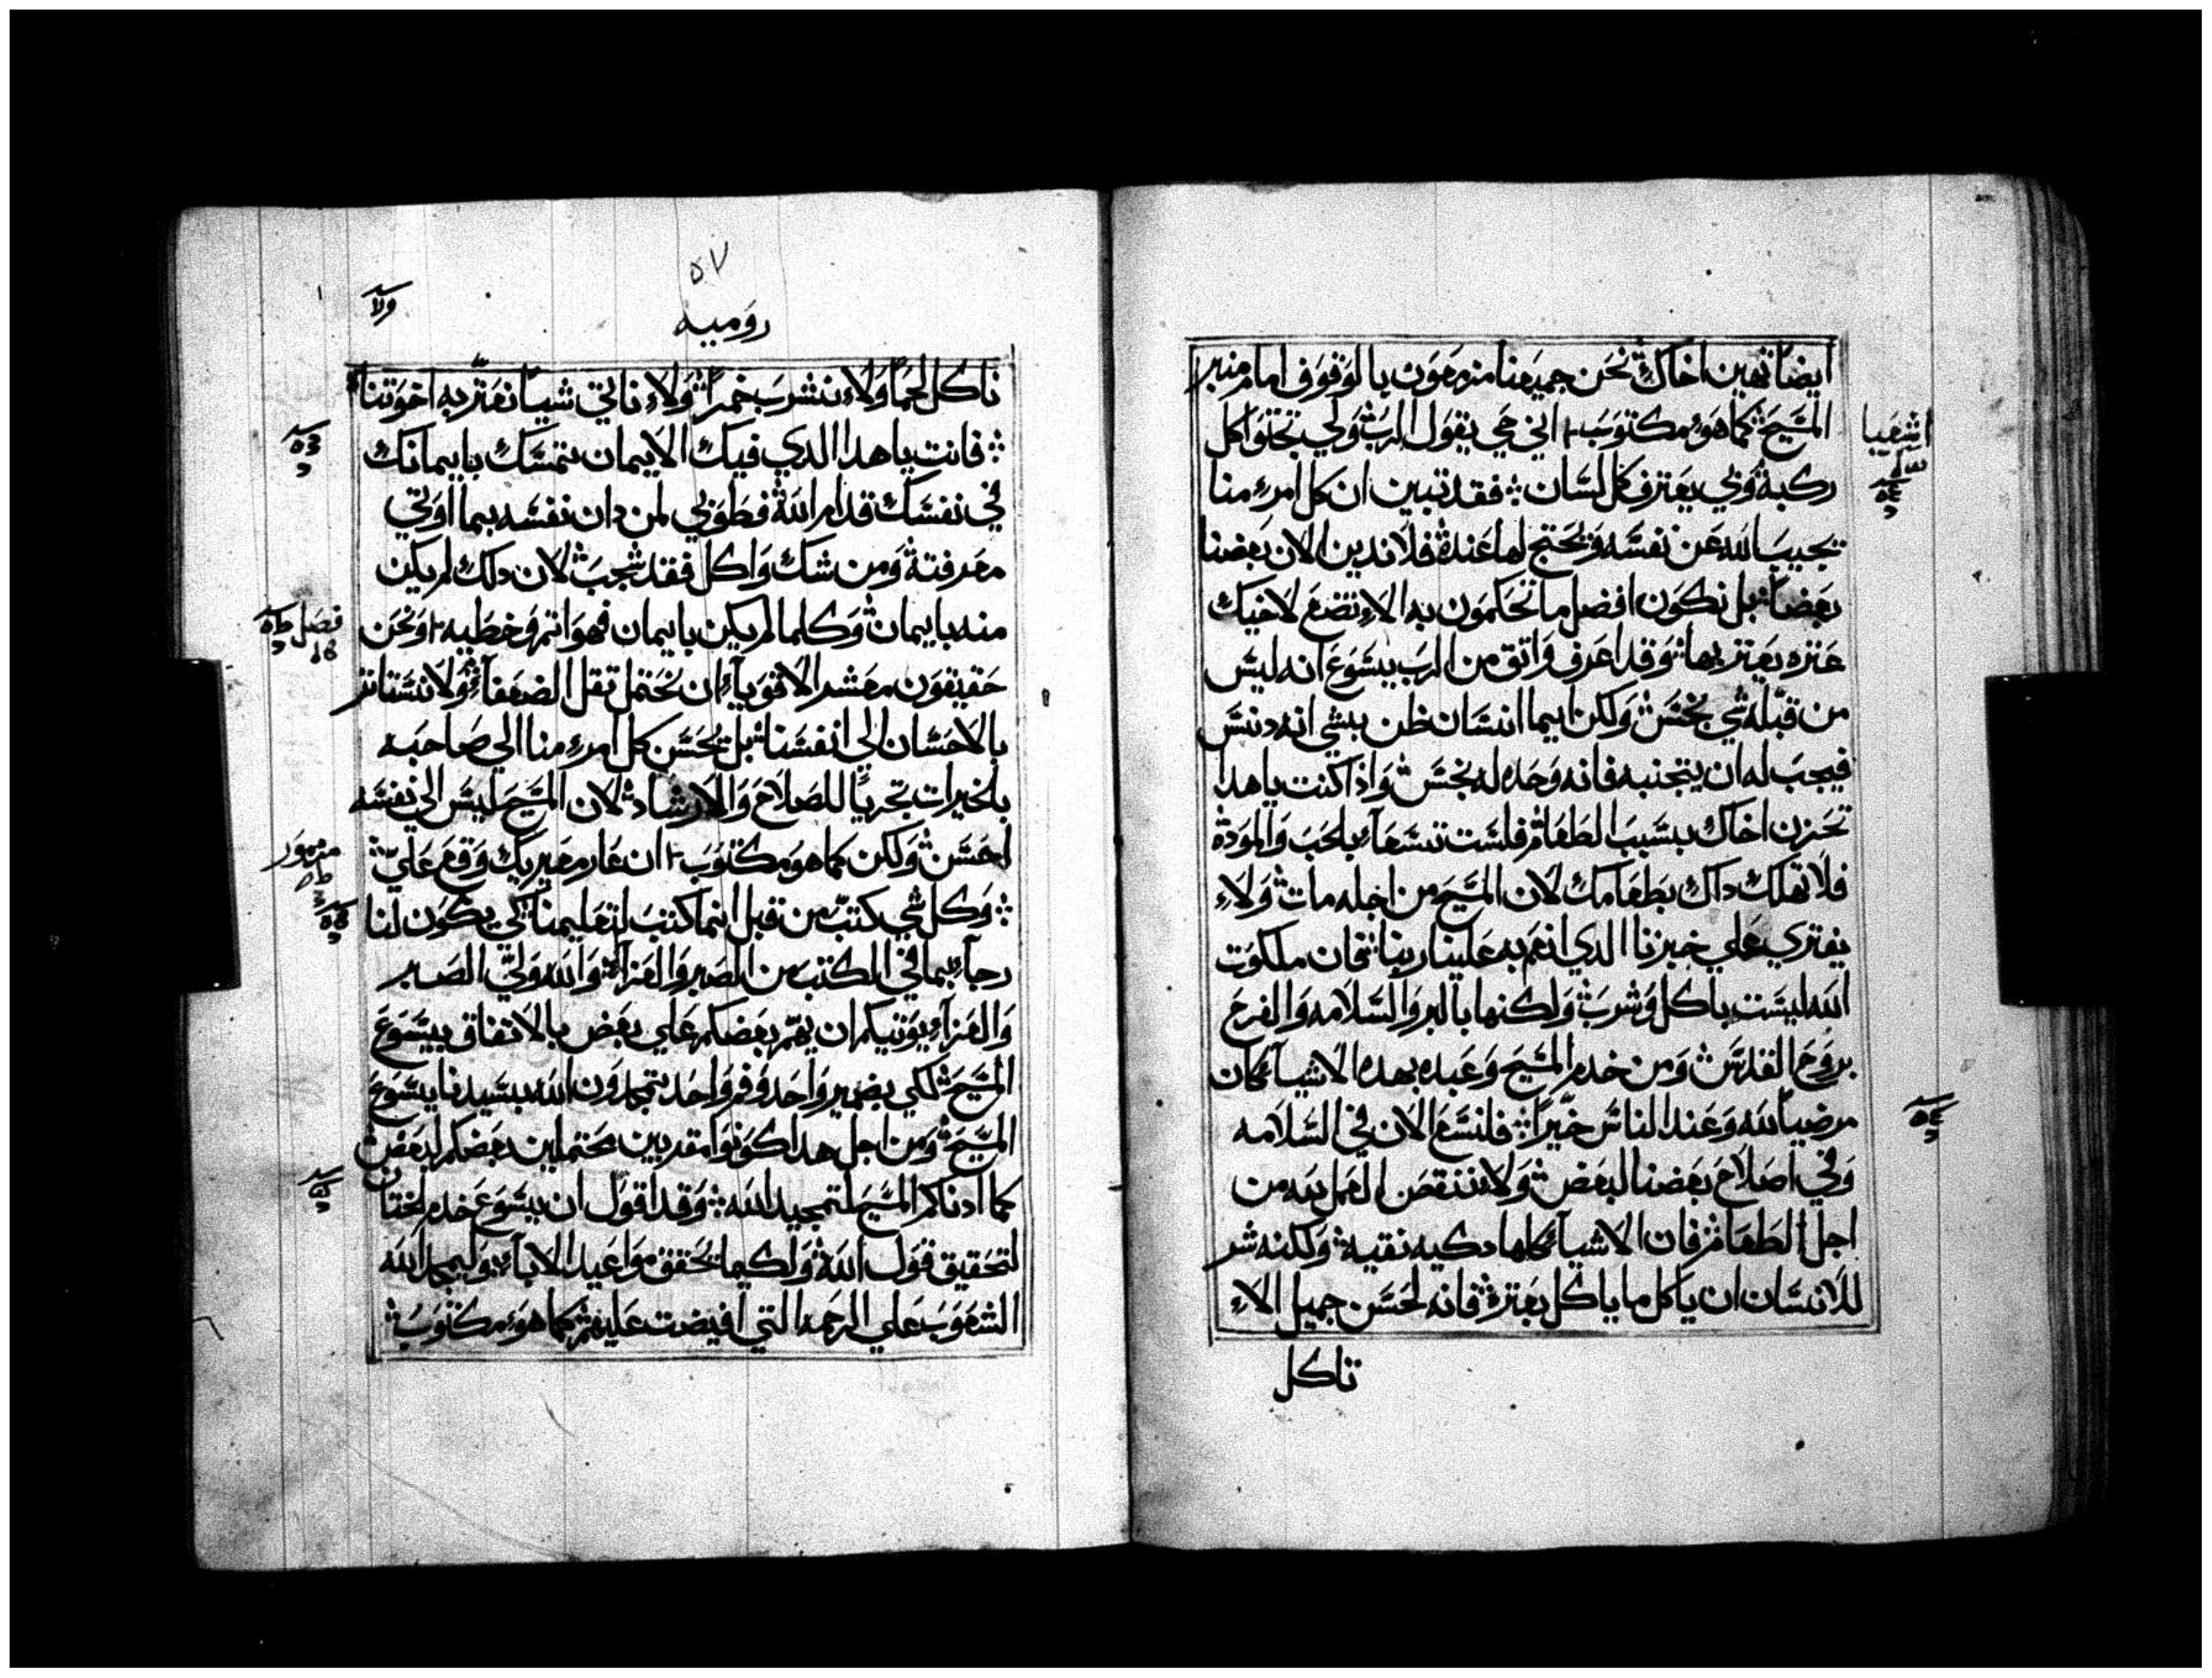 ايضا تهين اخاك نحن جميعنا مزمعون بالوقوف امام منبر
المسيح كما هو مكتوب اني حي يقول الرب ولي تجثوا كل
ركبة ولي يعترف كل لسان فقد تبين ان كل امرء منا
يجيب الله عن نفسه ويحتج لها عنده فلا ندين الان بعضنا
بعضا بل نكون افضل ما تحكمون به الا نضع لاخيك
عثره يعثر بها وقد اعرف واثق من الرب يسوع انه ليس
من قبله شي نجس ولكن ايما انسان ظن بشي انه دنس
فيجب له ان يتجنبه فانه وحده له نجس واذا كنت ياهدا
تحزن اخاك بسبب الطعام فلست تسعاء بالحب والموده
فلا تهلك داك بطعامك لان المسيح من اجله مات ولاء
يفتري علي خبزنا الدي انعم به علينا ربنا فان ملكوت
الله ليست باكل وشرب ولكنها بالبر والسلامه والفرح
بروح القدس ومن خدم المسيح وعبده بهده الاشياء كان
مرضيا لله وعند الناس خيرا فلنسع الان في السلامه
وفي اصلاح بعضنا لبعض ولا ننقص العمل لله من
اجل الطعام فان الاشياء كلها دكيه نقيه ولكنه شر
للانسان ان ياكل ما ياكل بعثرة فانه لحسن جميل الاء
ناكل
اشعيا
٥٧
روميه
ناكل لحما ولاء نشرب خمرا ولاء ناتي شيا نعثر به اخوتنا
فانت ياهدا الدي فيك الايمان تمسك بايمانك
في نفسك قدام الله فطوبي لمن دان نفسه بما اوتي
معرفته ومن شك واكل فقد شجب لان دلك لم يكن
منه بايمان وكلما لم يكن بايمان فهو اثم وخطيه ونحن
حقيقون معشر الاقوياء ان نحتمل ثقل الضعفاء ولا نستاثر
بالاحسان الي انفسنا بل يحسن كل امرء منا الي صاحبه
بالخيرات تحريا للصلاح والارشاد لان المسيح ليس الي نفسه
احسن ولكن كما هو مكتوب ان عار معيريك وقع علي
وكل شي كتب من قبل انما كتب لتعليمنا كي يكون لنا
رجاء بما في الكتب من الصبر والعزاء والله ولي الصبر
والعزاء يوتيكم ان يهم بعضكم علي بعض بالاتفاق بيسوع
المسيح لكي بضمير واحد وفم واحد تمجدون الله سيدنا يسوع
المسيح ومن اجل هدا كونوا مقربين محتملين بعضكم لبعض
كما ادناكم المسيح لتمجيد الله وقد اقول ان يسوع خدم الختان
لتحقيق قول الله ولكيما يحقق مواعيد الاباء وليمجد الله
الشعوب علي الرحمه التي افيضت عليهم كما هو مكتوب
فصل
مزمور